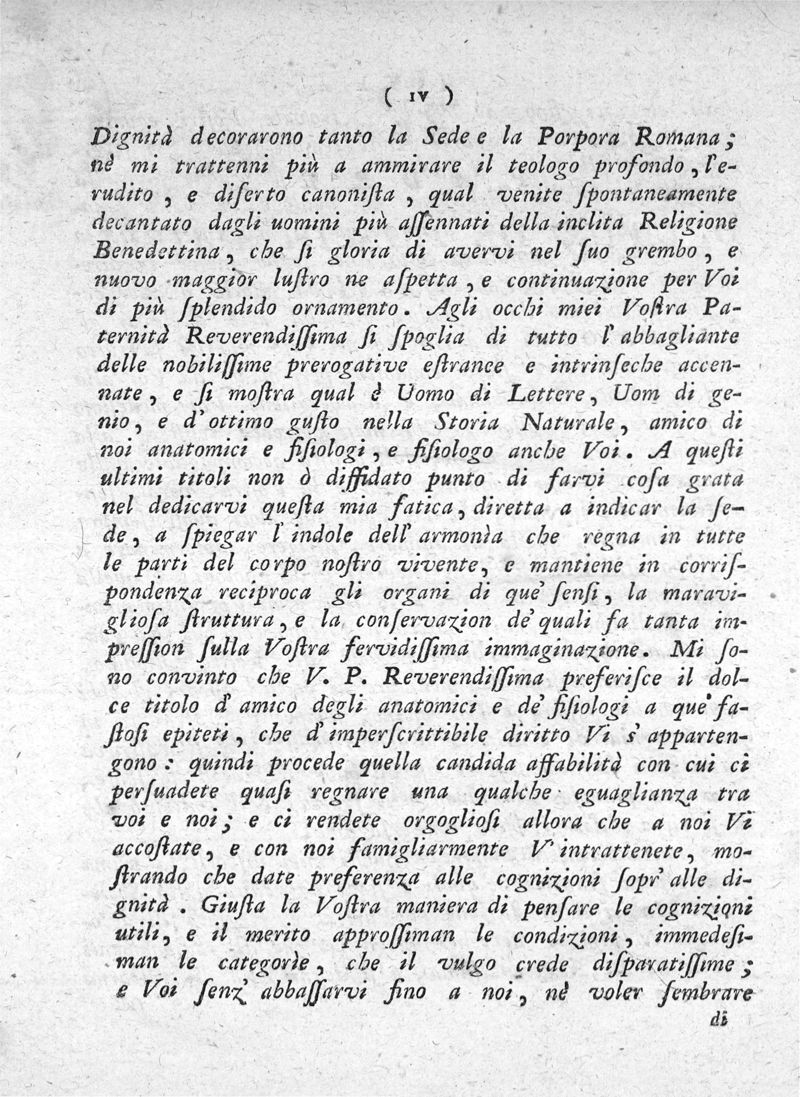 ( IV )
Dignità decorarono tanto la Sede e la Porpora Romana;
nè mi trattenni più a ammirare il teologo profondo, l'e-
rudito, e diſerto canoniſta, qual venite ſpontaneamente
decantato dagli uomini più aſſennati della inclita Religione
Benedettina, che ſi gloria di avervi nel ſuo grembo, e
nuovo maggior luſtro ne aſpetta, e continuazione per Voi
di più ſplendido ornamento. Agli occhi miei Voſtra Pa-
ternità Reverendiſſima ſi ſpoglia di tutto l'abbagliante
delle nobiliſſime prerogative eſtranee e intrinſeche accen-
nate, e ſi moſtra qual è Uomo di Lettere, Uom di ge-
nio, e d'ottimo guſto nella Storia Naturale, amico di
noi anatomici e fiſiologi, e fiſiologo anche Voi. A queſti
ultimi titoli non ò diffidato punto di farvi coſa grata
nel dedicarvi queſta mia fatica, diretta a indicar la ſe-
de, a ſpiegar l'indole dell'armonìa che regna in tutte
le parti del corpo noſtro vivente, e mantiene in corriſ-
pondenza reciproca gli organi di que' ſenſi, la maravi-
glioſa ſtruttura, e la conſervazion de' quali fa tanta im-
preſſion ſulla Voſtra fervidiſſima immaginazione. Mi ſo-
no convinto che V. P. Reverendiſſima preferiſce il dol-
ce titolo d'amico degli anatomici e de' fiſiologi a que' fa-
ſtoſi epiteti, che d'imperſcrittibile diritto Vi s'apparten-
gono: quindi procede quella candida affabilità con cui ci
perſuadete quaſi regnare una qualche eguaglianza tra
voi e noi; e ci rendete orgoglioſi allora che a noi Vi
accoſtate, e con noi famigliarmente V'intrattenete, mo-
ſtrando che date preferenza alle cognizioni ſopr'alle di-
gnità. Giuſta la Voſtra maniera di penſare le cognizioni
utili, e il merito approſſiman le condizioni, immedeſi-
man le categorìe, che il vulgo crede diſparatiſſime;
e Voi ſenz'abbaſſarvi fino a noi, nè voler ſembrare
di